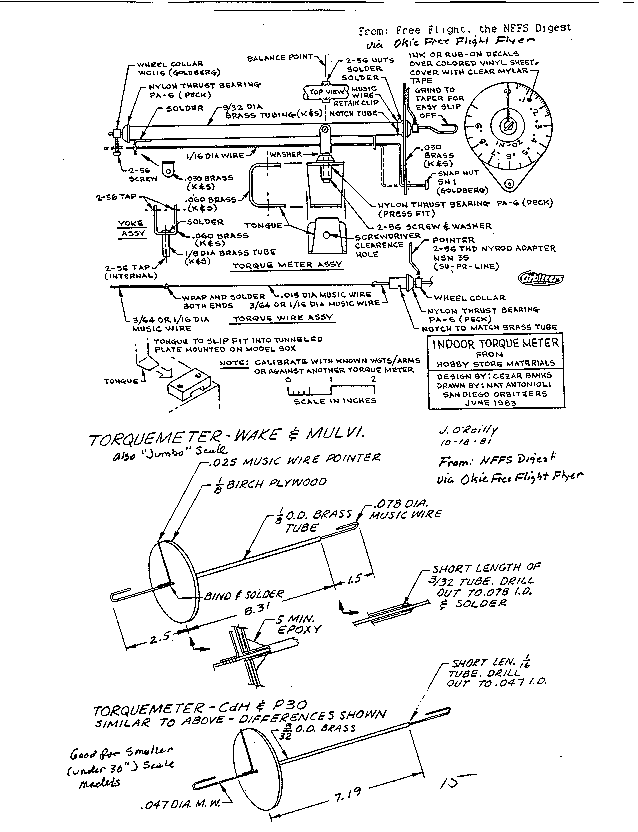 From: Free Flight, the NFFS Digest
via Okie Free Flight Flyer
WHEEL COLLAR
WC116 (GOLDBERG)
NYLON THRUST BEARING
PA-6 (PECK)
SOLDER
9/32 DIA
BRASS TUBING (K&S)
BALANCE POINT
2-56 NUTS
SOLDER
SOLDER
TOP VIEW
MUSIC
WIRE
RETAIN CLIP
NOTCH TUBE
INK OR RUB-ON DECALS
OVER COLORED VINYL SHEET.
COVER WITH CLEAR MYLAR
TAPE
GRIND TO
TAPER FOR
EASY SLIP
OFF
IN-OZ
1/16 DIA WIRE
WASHER
.030
BRASS
(K&S)
SNAP NUT
SN 1
(GOLDBERG)
2-56
SCREW
.030 BRASS
(K&S)
2-56 TAP
.060 BRASS
(K&S)
SOLDER
.060 BRASS
(K&S)
1/8 DIA BRASS TUBE
(K&S)
YOKE
ASSY
2-56 TAP
(INTERNAL)
TONGUE
TORQUE METER ASSY
NYLON THRUST BEARING PA-6 (PECK)
(PRESS FIT)
2-56 SCREW & WASHER
SCREWDRIVER
CLEARENCE
HOLE
POINTER
2-56 THD NYROD ADAPTER
NSN 35
(SU-PR-LINE)
WRAP AND SOLDER
BOTH ENDS
.015 DIA MUSIC WIRE
3/64 OR 1/16 DIA
3/64 OR 1/16 DIA
MUSIC WIRE
TORQUE WIRE ASSY
WHEEL COLLAR
NYLON THRUST BEARING
PA-6 (PECK)
NOTCH TO MATCH BRASS TUBE
TONGUE TO SLIP FIT INTO TUNNELED
PLATE MOUNTED ON MODEL BOX
TONGUE
NOTE: CALIBRATE WITH KNOWN WGTS/ARMS
OR AGAINST ANOTHER TORQUE METER
0 1 2
SCALE IN INCHES
INDOOR TORQUE METER
FROM
HOBBY STORE MATERIALS
DESIGN BY: CEZAR BANKS
DRAWN BY: NAT ANTONIOLI
SAN DIEGO ORBITEERS
JUNE 1983
TORQUEMETER-WAKE & MULVI.
Also "Jumbo" Scale
J. O'Reilly
10-18-81
From: NFFS Digest
via Okie Free Flight Flyer
.025 MUSIC WIRE POINTER
1/8 BIRCH PLYWOOD
1/8 O.D. BRASS
TUBE
.078 DIA.
MUSIC WIRE
BIND & SOLDER
8.31
1.5
2.5
5 MIN.
EPOXY
SHORT LENGTH OF
3/32 TUBE. DRILL
OUT TO .078 I.D.
& SOLDER
SHORT LEN. 1/16
TUBE. DRILL
OUT TO .047 I.D.
TORQUEMETER-CdH & P30
SIMILAR TO ABOVE - DIFFERENCES SHOWN
3/32 O.D. BRASS
Good for Smaller
(under 30") Scale
models
.047 DIA. M.W.
7.19
15